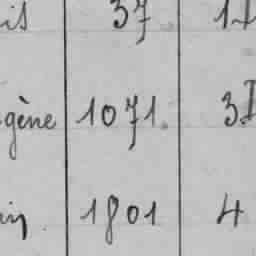 37
gène 1071. 3.I
1801 4